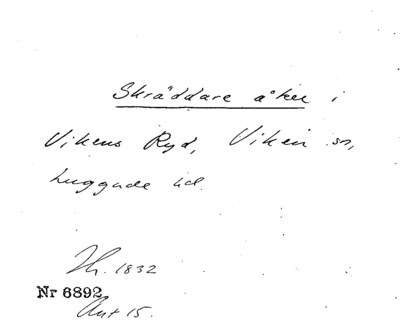 Skräddare åker i
Vikens Ryd, Viken sn,
Luggude hd.
Jh. 1832
Nr 6892
Ant 15.